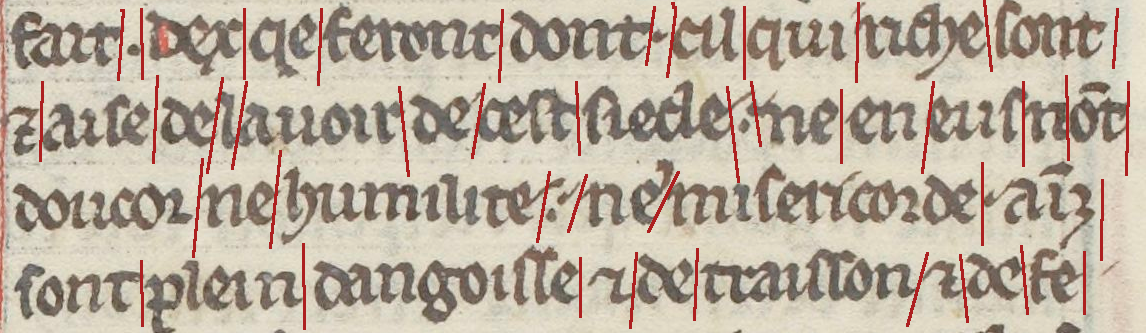 fait . dex qe feront dont . cil qui riche sont
⁊ aise de lauoir de cest siecle . ne en eus nōt
doucor ne humilite . ne misericorde . aīz
sont plein dangoisse ⁊ de traisson ⁊ de fe